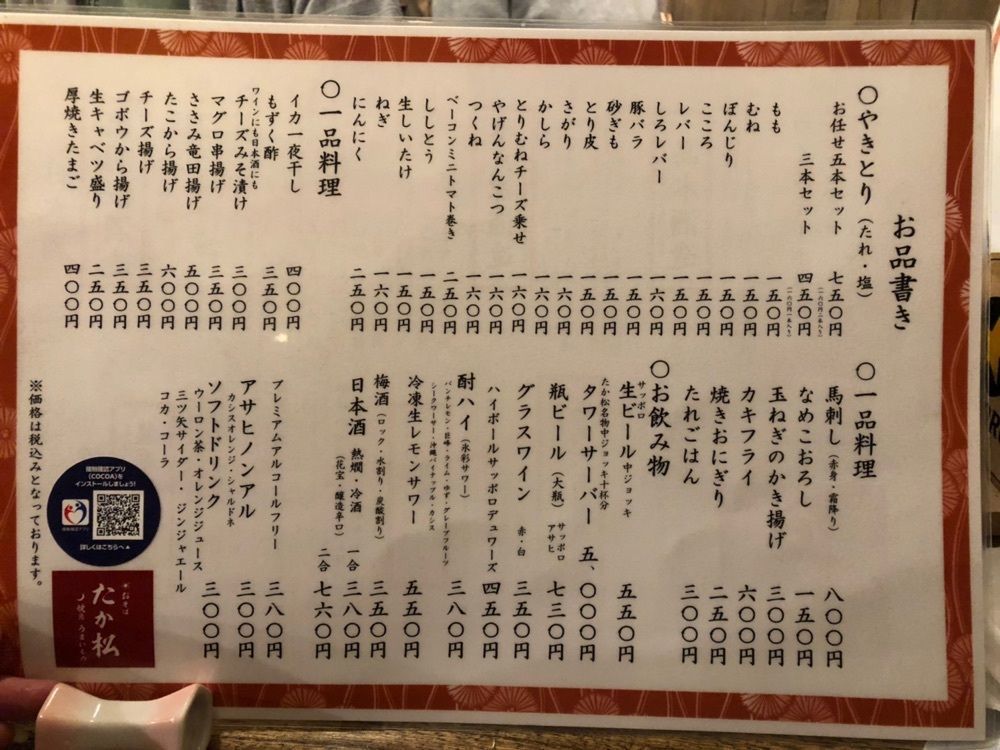 お品書き
〇やきとり（たれ・塩）
お任せ五本セット 七五〇円
三本セット 四五〇円
もも 一五〇円
むね 一五〇円
ぼんじり 一五〇円
こころ 一五〇円
レバー 一五〇円
しろレバー 一六〇円
豚バラ 一五〇円
砂ぎも 一五〇円
とり皮 一五〇円
さがり 一六〇円
かしら 一六〇円
とりむねチーズ乗せ 一六〇円
やげんなんこつ 一六〇円
つくね 一六〇円
ベーコンミニトマト巻き 二五〇円
ししとう 一五〇円
生しいたけ 一五〇円
ねぎ 一六〇円
にんにく 二五〇円
〇一品料理
イカ一夜干し 四〇〇円
もずく酢 三五〇円
ワインにも日本酒にも
チーズみそ漬け 三〇〇円
マグロ串揚げ 三五〇円
ささみ竜田揚げ 五〇〇円
たこから揚げ 六〇〇円
チーズ揚げ 三五〇円
ゴボウから揚げ 三五〇円
生キャベツ盛り 二五〇円
厚焼きたまご 四〇〇円
〇一品料理
馬刺し（赤身・霜降り） 八〇〇円
なめこおろし 一五〇円
玉ねぎのかき揚げ 三〇〇円
カキフライ 六〇〇円
焼きおにぎり 二五〇円
たれごはん 三〇〇円
〇お飲み物
サッポロ
生ビール 中ジョッキ 五五〇円
たか松名物中ジョッキ十杯分
タワーサーバー 五、〇〇〇円
瓶ビール（大瓶） サッポロ アサヒ 七三〇円
グラスワイン 赤・白 三五〇円
ハイボールサッポロデュワーズ 四五〇円
酎ハイ（氷彩サワー） 三八〇円
パンチレモン・巨峰・ライム・ゆず・グレープフルーツ
シークワーサー・沖縄パイナップル・カシス
冷凍生レモンサワー 五五〇円
梅酒（ロック・水割り・炭酸割り） 三五〇円
日本酒 熱燗・冷酒 一合 三八〇円
（花宝・醸造辛口） 二合 七六〇円
プレミアムアルコールフリー 三八〇円
アサヒノンアル 三〇〇円
カシスオレンジ・シャルドネ
ソフトドリンク 三〇〇円
ウーロン茶・オレンジジュース
三ツ矢サイダー・ジンジャエール
コカ・コーラ
※価格は税込みとなっております。
接触確認アプリ
(COCOA)を
インストールしましょう!
接触確認アプリ
詳しくはこちらへ▲
たか松